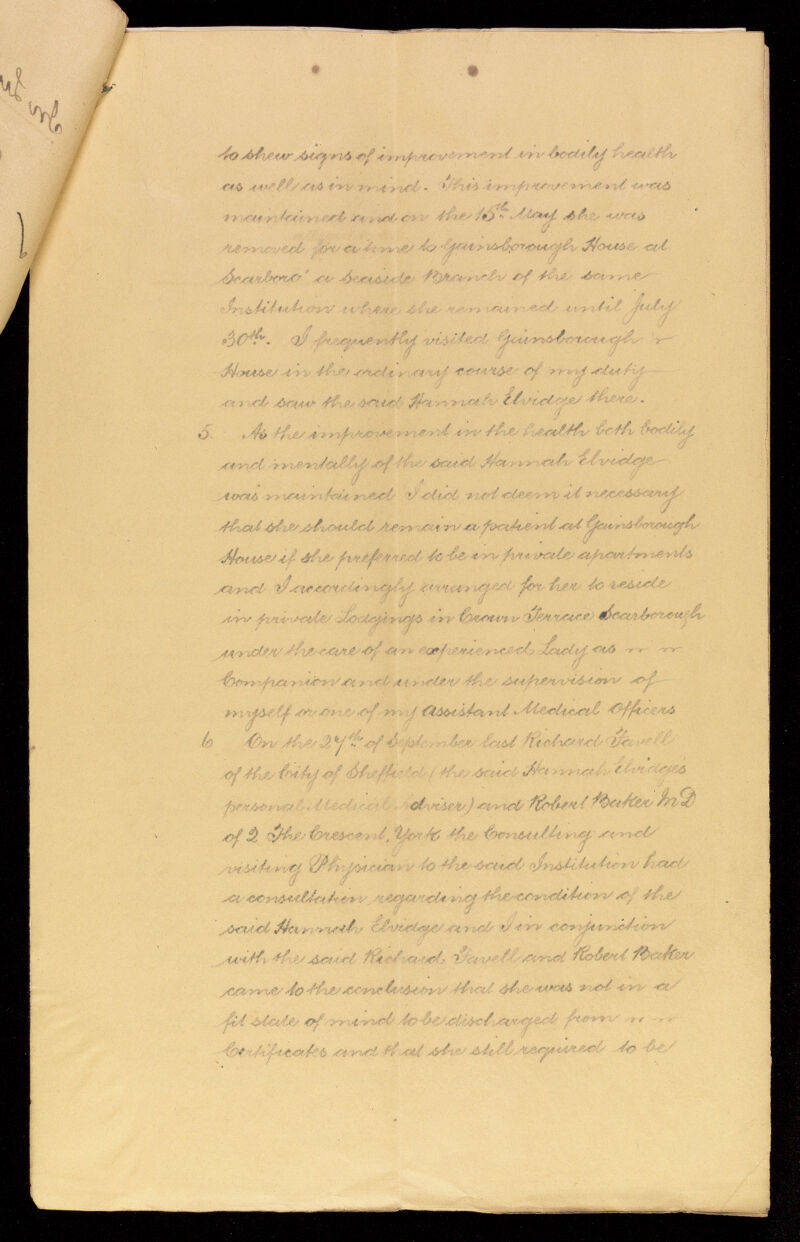 to shew signs of improvement in bodily health
as well as in mind. This improvement was
maintained and on the 15th May she was
removed for a time to Gainsborough House at
Scarboro' a Seaside Branch of the same
Institution where she remained until July
30th. I frequently visited Gainsborough
House in the ordinary course of my duty
and saw the said Hannah Elvidge there.
5. As the improvement in the health both bodily
and mentally of the said Hannah Elvidge
was maintained I did not deem it necessary
that she should remain a patient at Gainsborough
House if she preferred to be in private apartments
and I accordingly arranged for her to reside
in private Lodgings in Crown Terrace Scarborough
under the care of an experienced Lady as
Companion and under the supervision of
myself or one of my Assistant Medical Officers
6 On the 27th of September last Richard Favell
of the City of Sheffield (the said Hannah Elvidges
personal Medical Adviser) and Robert Baker M D
of 2 The Crescent, York the Consulting and
visiting Physician to the said Institution had
a consultation regarding the condition of the
said Hannah Elvidge and I in conjunction
with the said Richard Favell and Robert Baker
came to the conclusion that she was not in a
fit state of mind to be discharged from
Certificates and that she still required to be